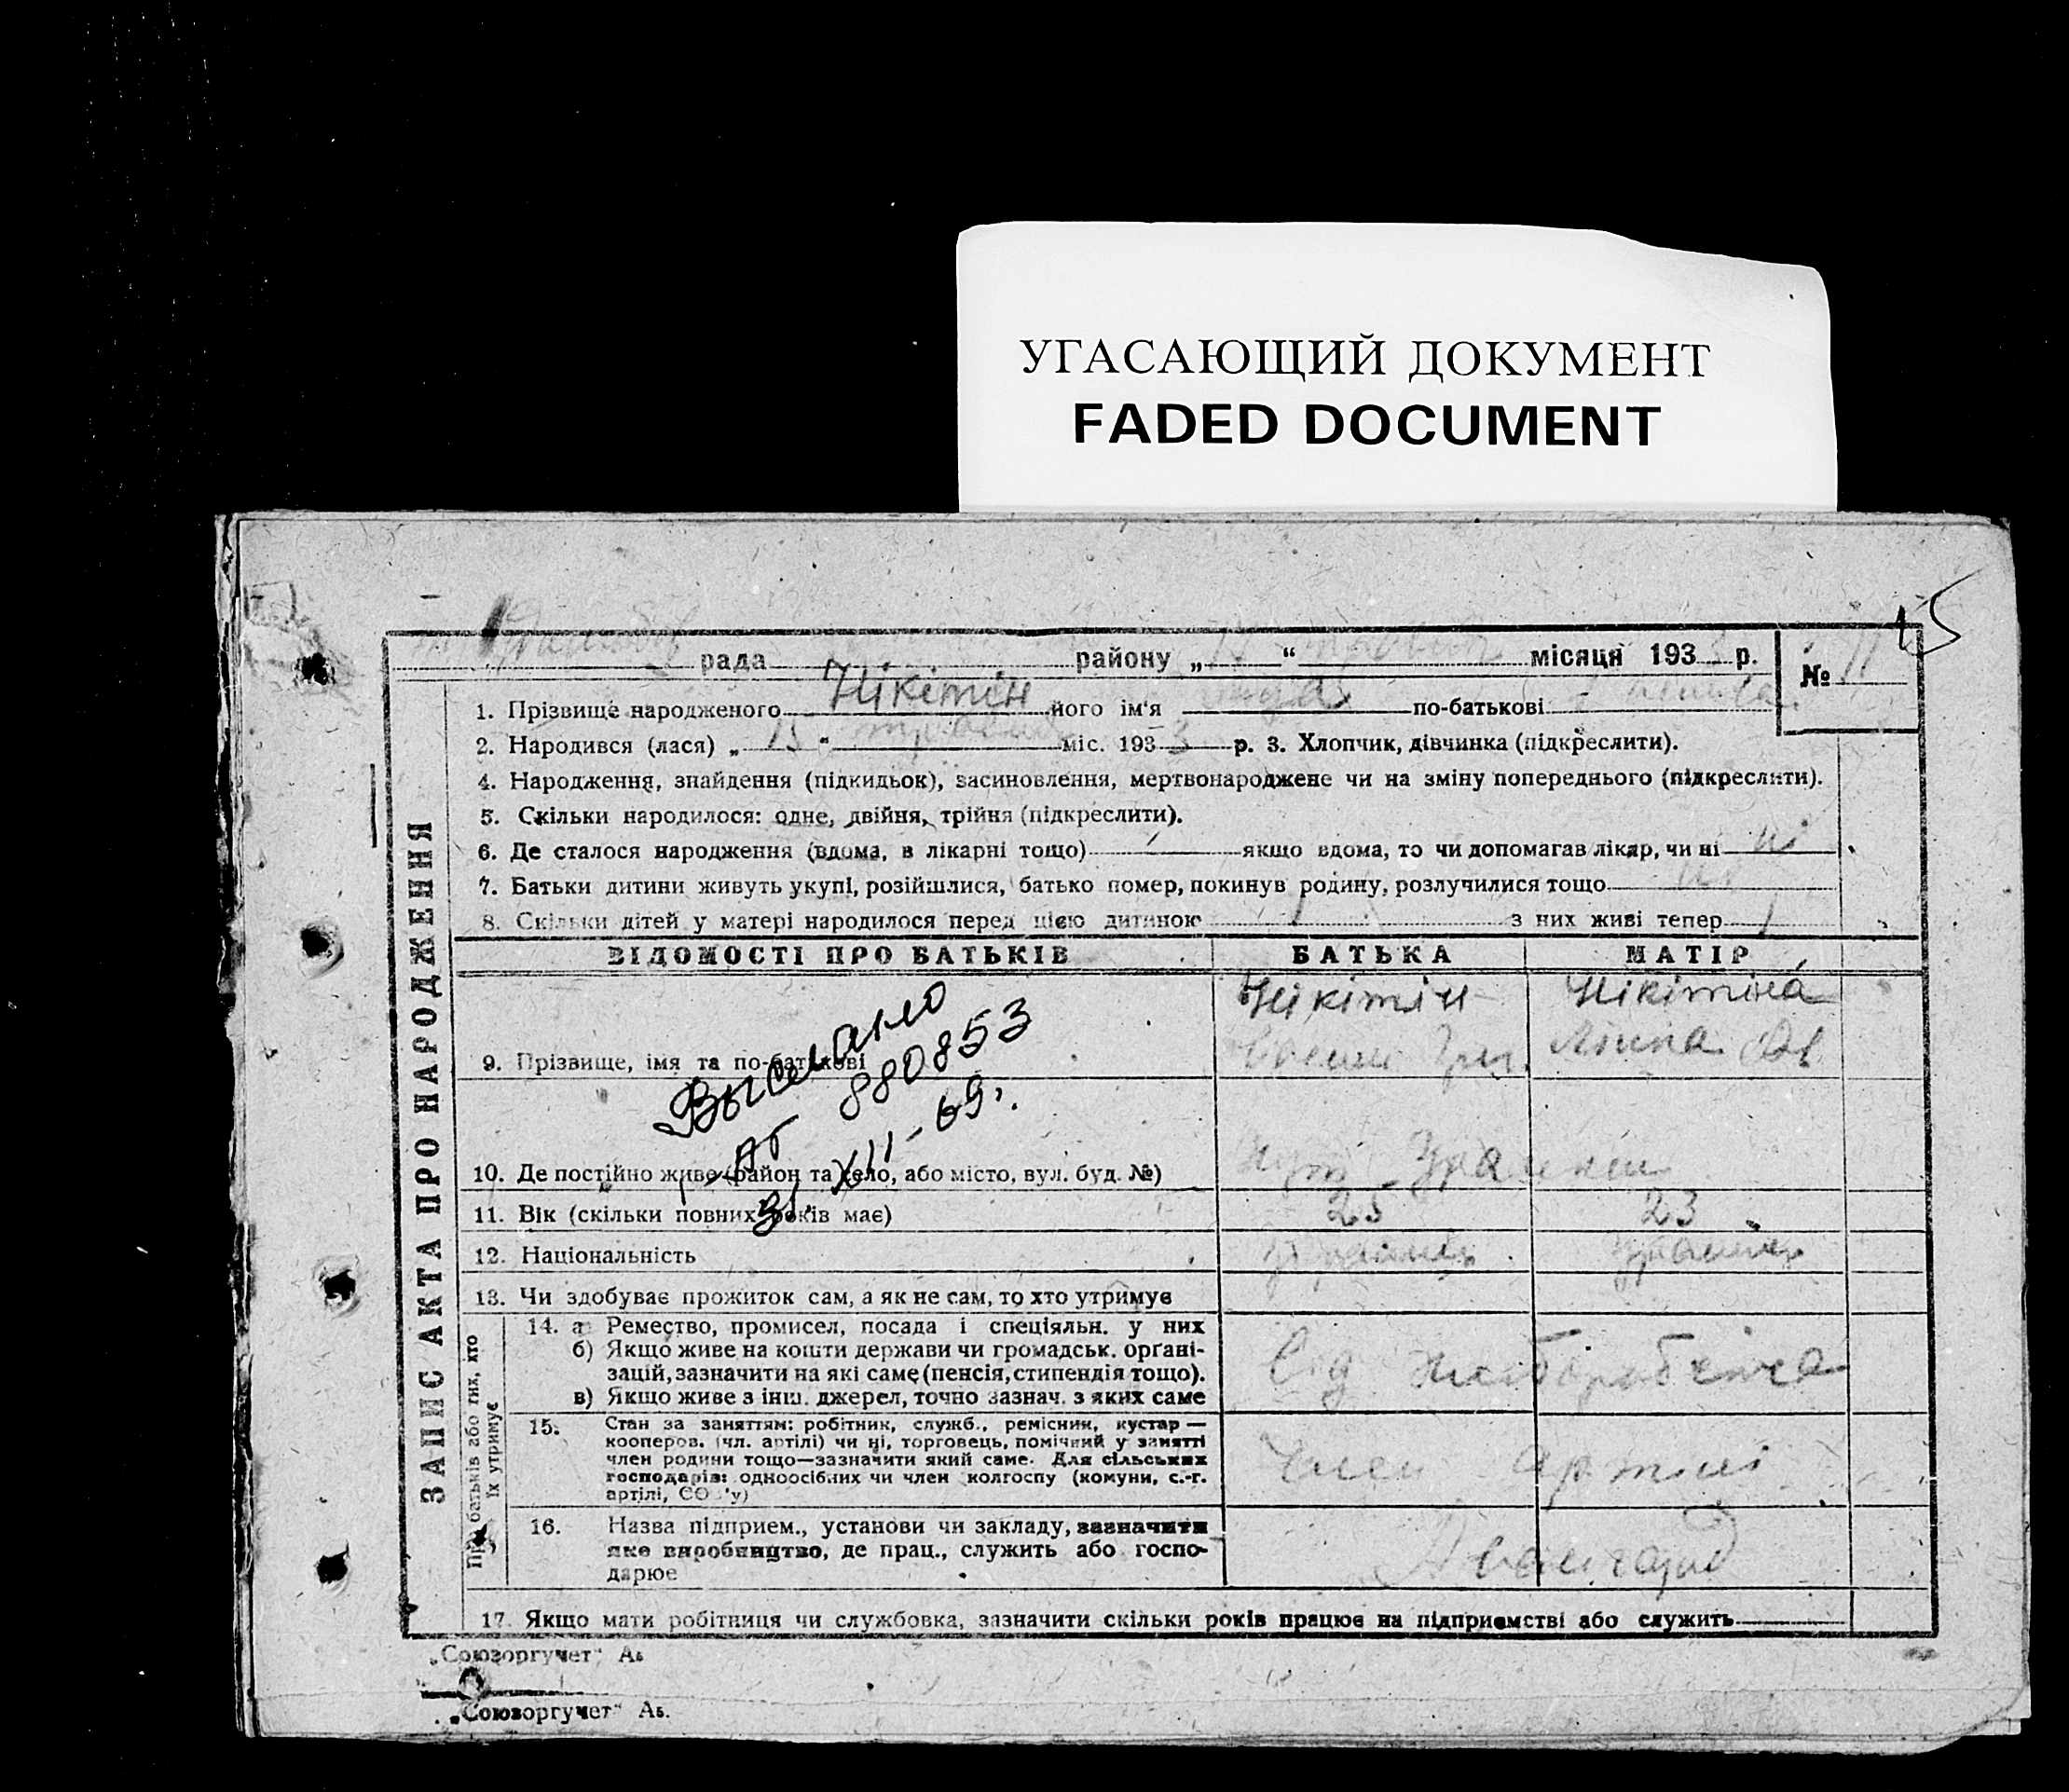 УГАСАЮЩИЙ ДОКУМЕНТ
FADED DOCUMENT
15
рада району „ “ місяця 193 р.
№ 11
1. Прізвище народженого Нікітін його ім'я по-батькові
2. Народився (лася) „ 15 “ міс. 1933 р. 3. Хлопчик, дівчинка (підкреслити).
4. Народження, знайдення (підкидьок), засиновлення, мертвонароджене чи на зміну попереднього (підкреслити).
5. Скільки народилося: одне, двійня, трійня (підкреслити).
6. Де сталося народження (вдома, в лікарні тощо) якщо вдома, то чи допомагав лікар, чи ні ні
7. Батьки дитини живуть укупі, розійшлися, батько помер, покинув родину, розлучилися тощо
8. Скільки дітей у матері народилося перед цією дитиною 1 з них живі тепер 1
ЗАПИС АКТА ПРО НАРОДЖЕННЯ
ВІДОМОСТІ ПРО БАТЬКІВ БАТЬКА МАТІР
Нікітін Нікітіна
9. Прізвище, імя та по-батькові
Выслано
АБ 880853
31. XII-69г.
10. Де постійно живе (район та село, або місто, вул. буд. №)
11. Вік (скільки повних років має) 25 23
12. Національність
13. Чи здобуває прожиток сам, а як не сам, то хто утримує
Про батьків або тих, хто
їх утримує
14. а Ремество, промисел, посада і спеціяльн. у них
б) Якщо живе на кошти держави чи громадськ. орґані-
зацій, зазначити на які саме (пенсія, стипендія тощо).
в) Якщо живе з інш. джерел, точно зазнач. з яких саме
Від хліборобства
15. Стан за заняттям: робітник, служб., ремісник, кустар —
кооперов. (чл. артілі) чи ні, торговець, помічний у занятті
член родини тощо—зазначити який саме. Для сільських
господарів: одноосібних чи член колгоспу (комуни, с.-г.
артілі, СО 'у)
Член артілі
16. Назва підприєм., установи чи закладу, зазначити
яке виробництво, де прац., служить або госпо-
дарює
Авангард
17. Якщо мати робітниця чи службовка, зазначити скільки років працює на підприємстві або служить
„Союзоргучет“ Аб
„Союзоргучет“ Аб.